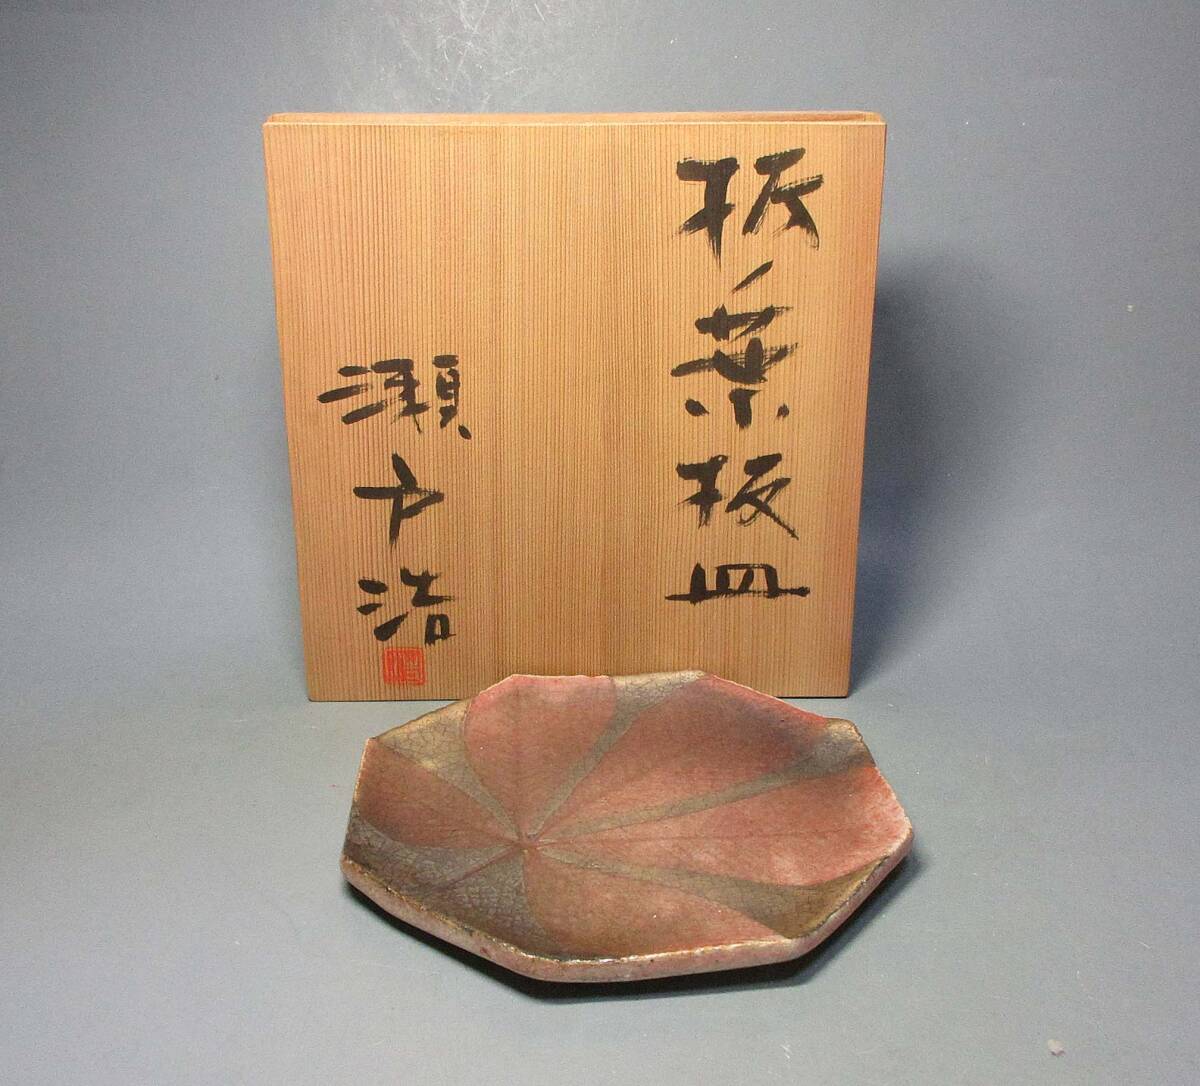 栃ノ葉板皿
瀬戸浩